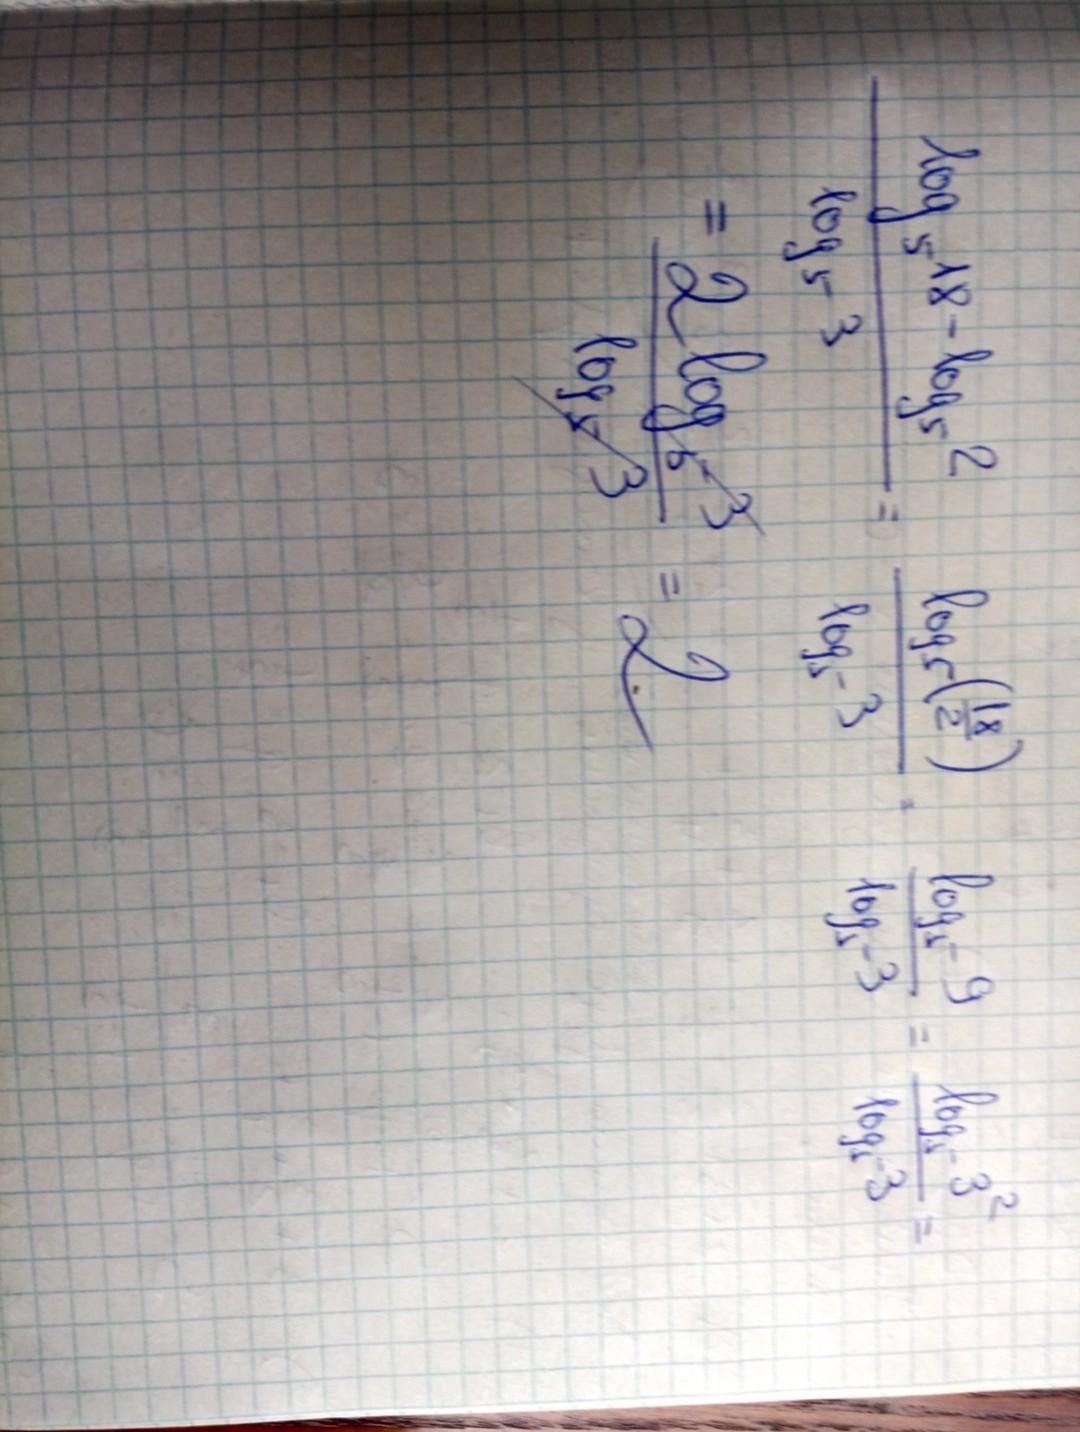 (log₅ 18 - log₅ 2) / (log₅ 3) = (log₅ (18/2)) / (log₅ 3) = (log₅ 9) / (log₅ 3) = (log₅ 3²) / (log₅ 3) =
= (2 log₅ 3) / (log₅ 3) = 2